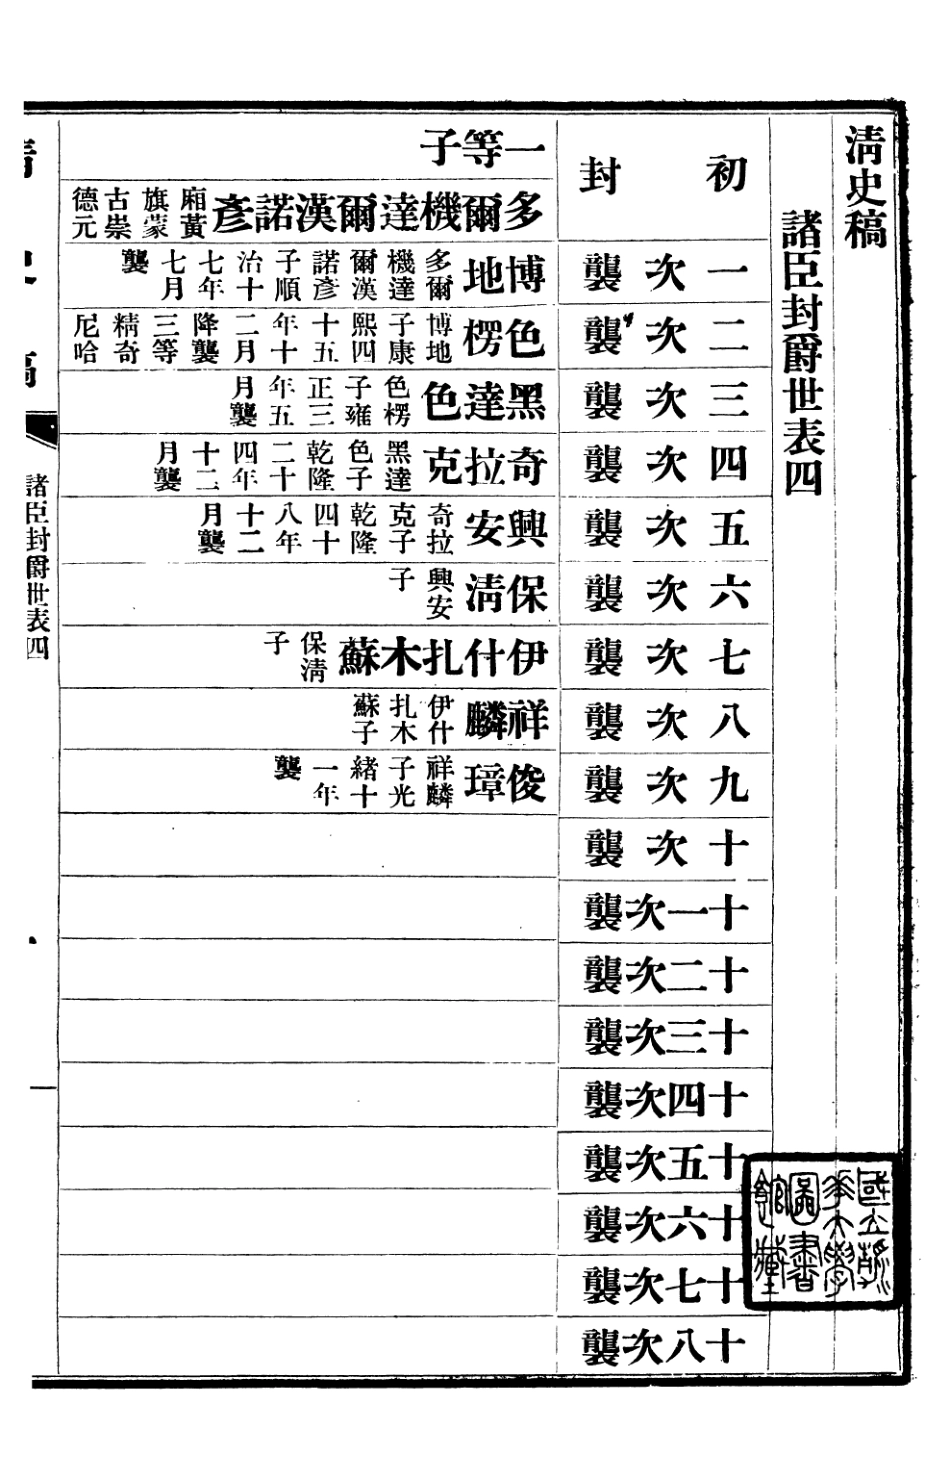 淸史稿
諸臣封爵世表四
初封
一次襲
二次襲
三次襲
四次襲
五次襲
六次襲
七次襲
八次襲
九次襲
十次襲
十一次襲
十二次襲
十三次襲
十四次襲
十五次襲
十六次襲
十七次襲
十八次襲
一等子
多爾機達爾漢諾彥 廂黃旗蒙古崇德元
博地 多爾機達爾漢諾彥子順治十七年七月襲
色楞 博地子康熙四十五年十二月降襲三等精奇尼哈
黑達色 色楞子雍正三年五月襲
奇拉克 黑達色子乾隆二十四年十二月襲
興安 奇拉克子乾隆四十八年十二月襲
保淸 興安子
伊什扎木蘇 保淸子
祥麟 伊什扎木蘇子
俊璋 祥麟子光緒十一年襲
淸史稿
諸臣封爵世表四
一
國立淸
華大學
圖書
館藏